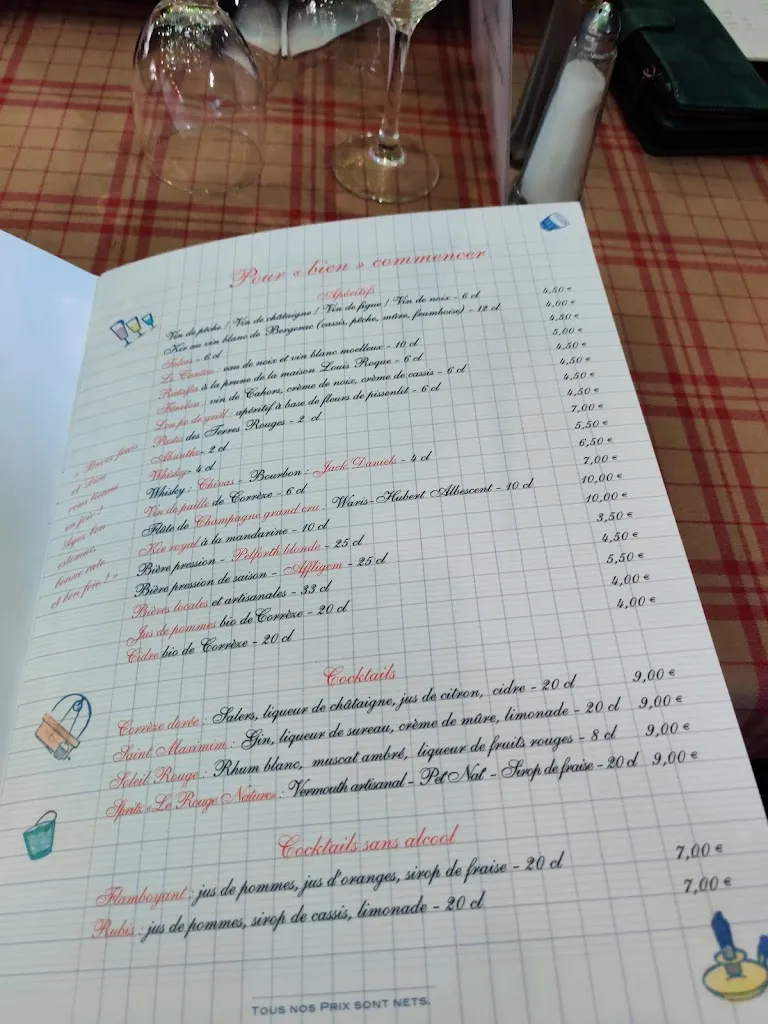 Pour « bien » commencer
Apéritifs
Vin de pêche / Vin de châtaigne / Vin de figue / Vin de noix - 6 cl 4,50 €
Kir au vin blanc de Bergerac (cassis, pêche, mûre, framboise) - 12 cl 4,00 €
Salers - 6 cl 4,50 €
: eau de noix et vin blanc moelleux - 10 cl 5,00 €
Ratafia à la prune de la maison Louis Roque - 6 cl 4,50 €
: vin de Cahors, crème de noix, crème de cassis - 6 cl 4,50 €
Loupe de grill : apéritif à base de fleurs de pissenlit - 6 cl 4,50 €
Pastis des Terres Rouges - 2 cl 4,50 €
Absinthe - 2 cl 7,00 €
Whisky - 4 cl 5,50 €
Whisky : Chivas : Bourbon : Jack Daniels - 4 cl 6,50 €
Vin de paille de Corrèze - 6 cl 7,00 €
Flûte de Champagne grand cru : Waris-Hubert Albescent - 10 cl 10,00 €
Kir royal à la mandarine - 10 cl 10,00 €
Bière pression - Pelforth blonde - 25 cl 3,50 €
Bière pression de saison - Affligem - 25 cl 4,50 €
Bières locales et artisanales - 33 cl 5,50 €
Jus de pommes bio de Corrèze - 20 cl 4,00 €
Cidre bio de Corrèze - 20 cl 4,00 €
« Buvez frais
et Dieu
vous tienne
en joie !
Ayez bon
estomac,
bonne rate
et bon foie ! »
Cocktails
Corrèze dorée : Salers, liqueur de châtaigne, jus de citron, cidre - 20 cl 9,00 €
Saint Maximim : Gin, liqueur de sureau, crème de mûre, limonade - 20 cl 9,00 €
Soleil Rouge : Rhum blanc, muscat ambré, liqueur de fruits rouges - 8 cl 9,00 €
Spritz «Le Rouge Nature» : Vermouth artisanal - Pet Nat' - Sirop de fraise - 20 cl 9,00 €
Cocktails sans alcool
Flamboyant : jus de pommes, jus d'oranges, sirop de fraise - 20 cl 7,00 €
Rubis : jus de pommes, sirop de cassis, limonade - 20 cl 7,00 €
TOUS NOS PRIX SONT NETS.